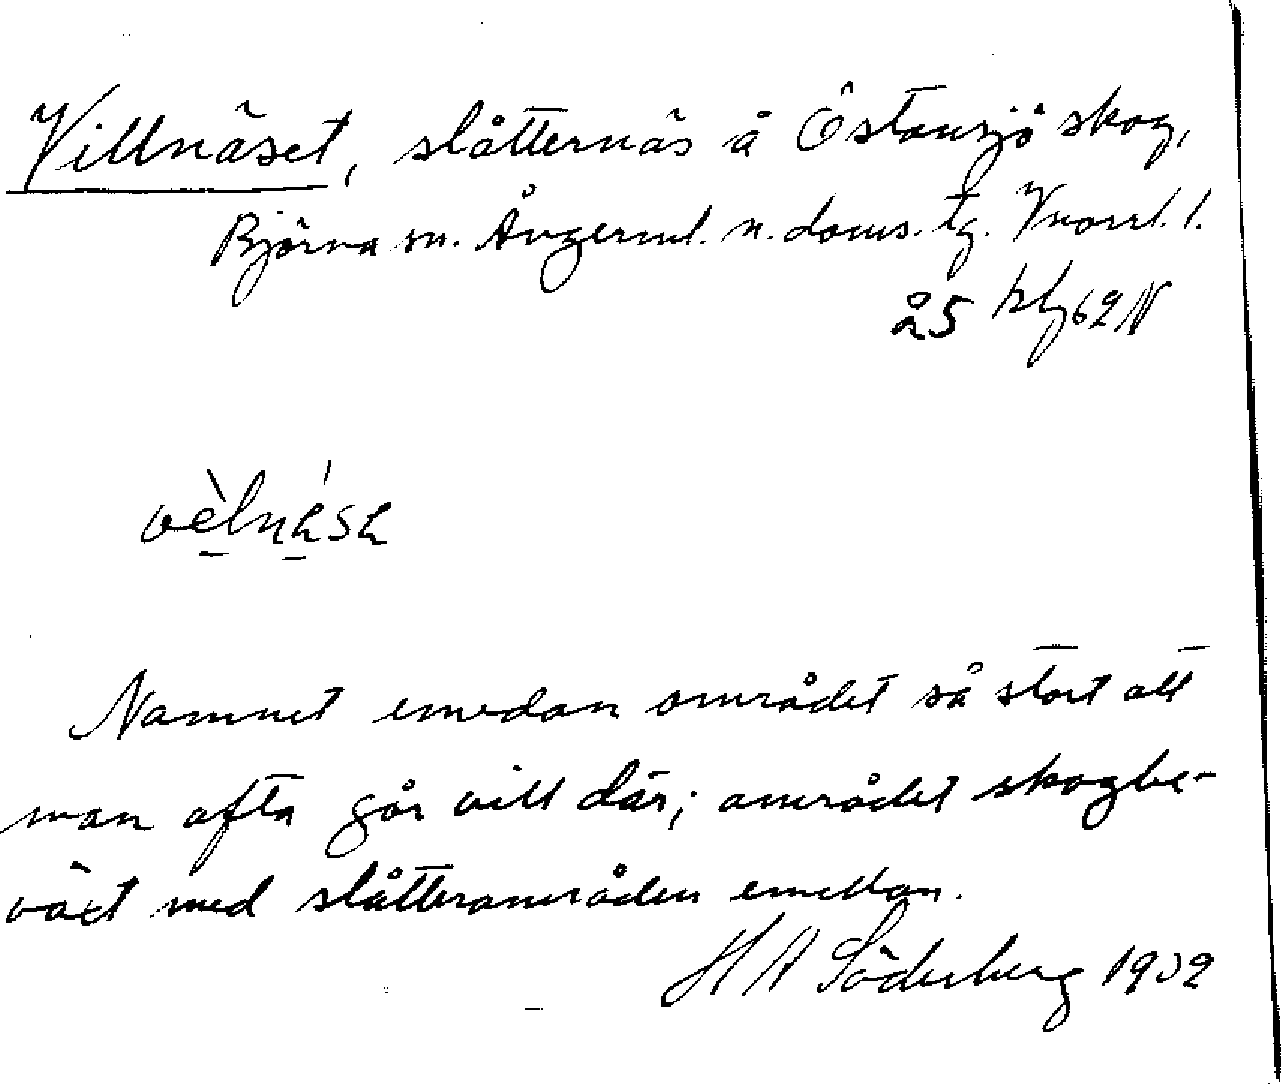 Villnäset, slåtternäs å Östansjö skog,
Björna sn. Ångerml. n. doms. tg. Vnorrl. l.
25 kfg 62 N
vèlnäsä
Namnet emedan området så stort att
man ofta går vill där; området skogbe-
växt med slåtterområden emellan.
H A Söderberg 1932